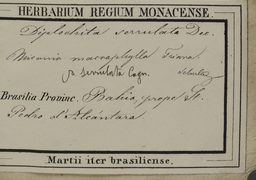 HERBARIUM REGIUM MONACENSE.
Diplochita serrulata Dec.
Miconia macrophylla Triana.
β serrulata Cogn.
Brasilia Provinc. Bahia, prope St.
Pedro d'Alcántara.
Martii iter brasiliense.